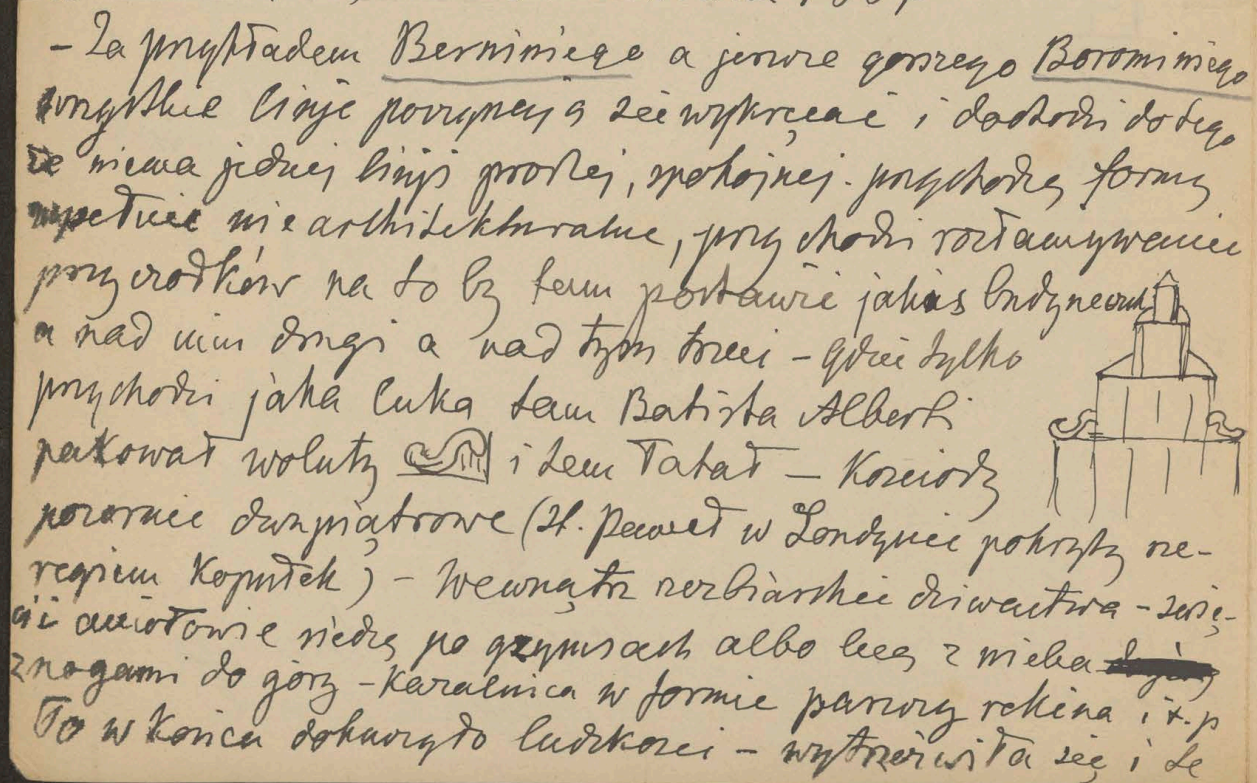 – Za przykładem Berniniego a jeszcze gorszego Borominiego
wszystkie linje poczynają się wykręcać i dochodzi do tego
że niema jednej linji prostej, spokojnej. przychodzą formy
zupełnie nie architekturalne, przychodzi rozłamywanie
przyczółków na to by tam postawić jakiś budyneczek
a nad nim drugi a nad tym trzeci – gdzie tylko
przychodzi jaka luka tam Batista Alberti
pakował woluty i tem łatał – Kościoły
pozornie dwupiątrowe (St. Paweł w Londynie pokryty sze-
regiem kopułek) – Wewnątrz rzeźbiarskie dziwactwa – świę-
ci aniołowie siedzą po gzymsach albo lecą z nieba
z nogami do góry – Kazalnica w formie paszczy rekina i t. p
To w końcu dokuczyło ludzkości – wytrzeźwiła się i te